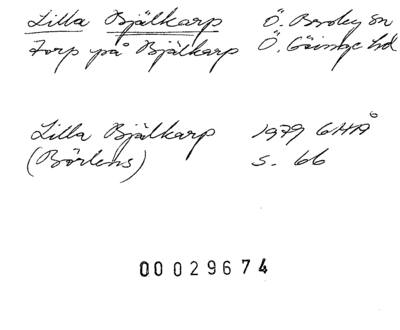 Lilla Bjälkarp Ö. Broby sn
Torp på Bjälkarp Ö. Göinge hd
Lilla Bjälkarp 1979 GHÅ
(Börlens) s. 66
00029674